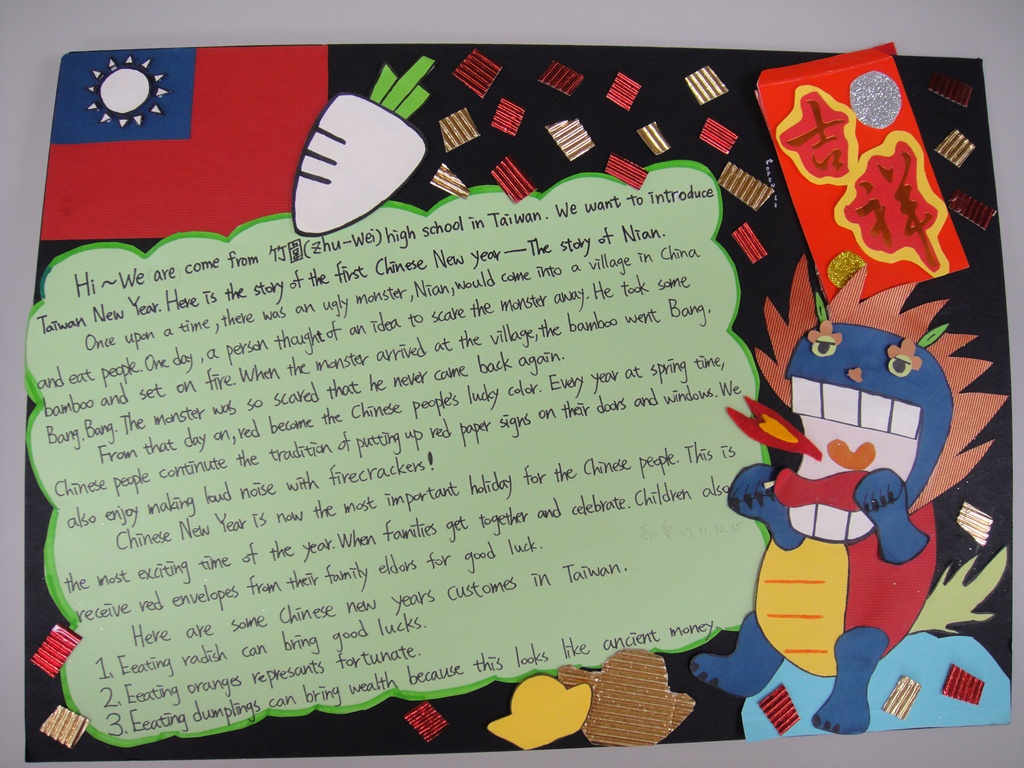 吉祥
Hi~We are come from 竹圍(Zhu-Wei) high school in Taiwan. We want to introduce
Taiwan New Year. Here is the story of the first Chinese New year—The story of Nian.
Once upon a time, there was an ugly monster, Nian, would come into a village in China
and eat people. One day, a person thought of an idea to scare the monster away. He took some
bamboo and set on fire. When the monster arrived at the village, the bamboo went Bang.
Bang. Bang. The monster was so scared that he never came back again.
From that day on, red become the Chinese people's lucky color. Every year at spring time,
Chinese people contintute the tradition of putting up red paper signs on their doors and windows. We
also enjoy making loud noise with firecrackers!
Chinese New Year is now the most important holiday for the Chinese people. This is
the most exciting time of the year. When families get together and celebrate. Children also
receive red envelopes from their family eldors for good luck.
Here are some Chinese new years customes in Taiwan.
1. Eeating radish can bring good lucks.
2. Eeating oranges represants fortunate.
3. Eeating dumplings can bring wealth because this looks like ancient money